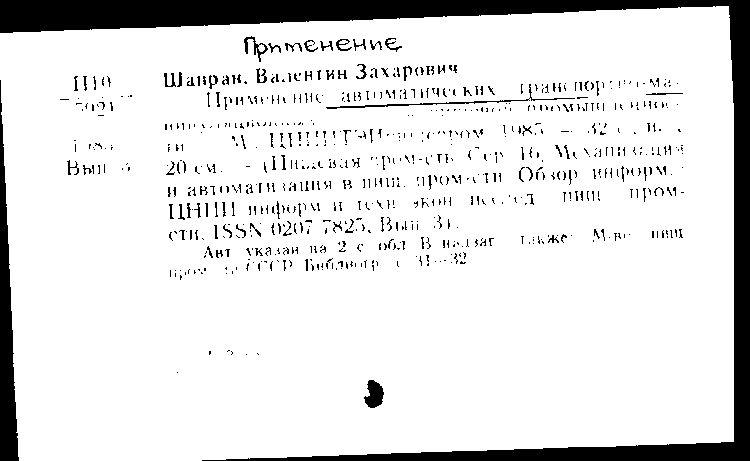 Применение
П10 Шапран, Валентин Захарович
Применение автоматических транспортно-ма-
пищевой промышленнос-
ти. М. ЦНИИТЭИпищепром 1985 — 32 с. ил.
Вып 3 20 см. — (Пищевая пром-сть. Сер. 16, Механизация
и автоматизация в пищ. пром-сти Обзор. информ.
ЦНИИ информ и техн экон исслед пищ пром-
сти, ISSN 0207 7825, Вып. 3).
Авт указан на 2 с обл В надзаг также М-во пищ
пром СССР Библиогр с 31—32